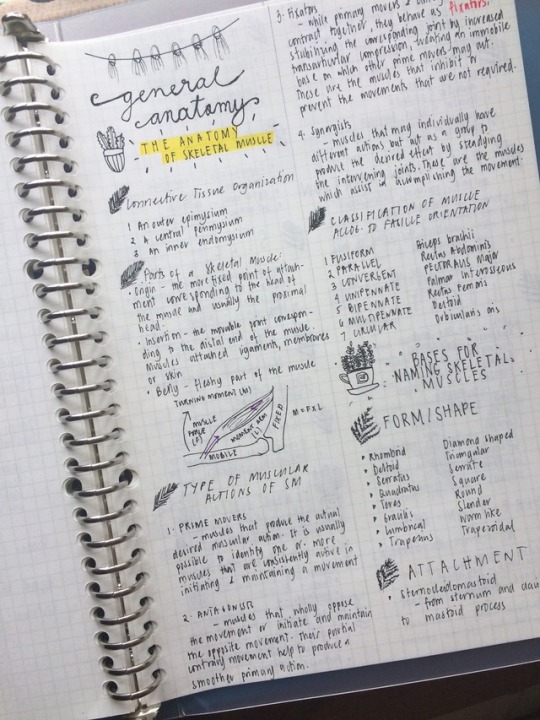 general
anatomy
THE ANATOMY
OF SKELETAL MUSCLE
Connective Tissue Organization
1 An outer epimysium
2 A central perimysium
3 An inner endomysium
Parts of a Skeletal Muscle:
• Origin - the more fixed point of attach-
ment corresponding to the head of
the muscle and usually the proximal
head.
• Insertion - the movable point correspon-
ding to the distal end of the muscle.
Muscles attached ligaments, membranes
or skin
• Belly - fleshy part of the muscle
TURNING MOMENT (M)
MUSCLE
FORCE
(F)
MOMENT ARM
(L)
FIXED
MOBILE
M = F x L
TYPE OF MUSCULAR
ACTIONS OF SM
1. PRIME MOVERS
- muscles that produce the actual
desired muscular action. It is usually
possible to identify one or more
muscles that are consistently active in
initiating & maintaining a movement
2. ANTAGONISTS
- muscles that wholly oppose
the movement or initiate and maintain
the opposite movement. Their partial
contrary movement help to produce a
smoother primary action.
3. Fixators
- while primary movers &
contract together, they behave as fixators,
stabilizing the corresponding joint by increased
transarticular compression, creating an immobile
base on which other prime movers may act.
These are the muscles that inhibit or
prevent the movements that are not required.
4. Synergists
- muscles that may individually have
different actions but act as a group to
produce the desired effect by steadying
the intervening joints. These are the muscles
which assist in accomplishing the movement.
CLASSIFICATION OF MUSCLE
ACCDG. TO FASICLE ORIENTATION
1 FUSIFORM Biceps brachii
2 PARALLEL Rectus Abdominis
3 CONVERGENT PECTORALIS Major
4 UNIPENNATE Palmar interosseous
5 BIPENNATE Rectus femoris
6 MULTIPENNATE Deltoid
7 CIRCULAR Orbicularis oris
BASES FOR
NAMING SKELETAL
MUSCLES
FORM/SHAPE
• Rhomboid Diamond shaped
• Deltoid Triangular
• Serratus Serrate
• Quadratus Square
• Teres Round
• Gracilis Slender
• Lumbrical Worm like
• Trapezius Trapezoidal
ATTACHMENT
• Sternocleidomastoid
- from sternum and
to mastoid process